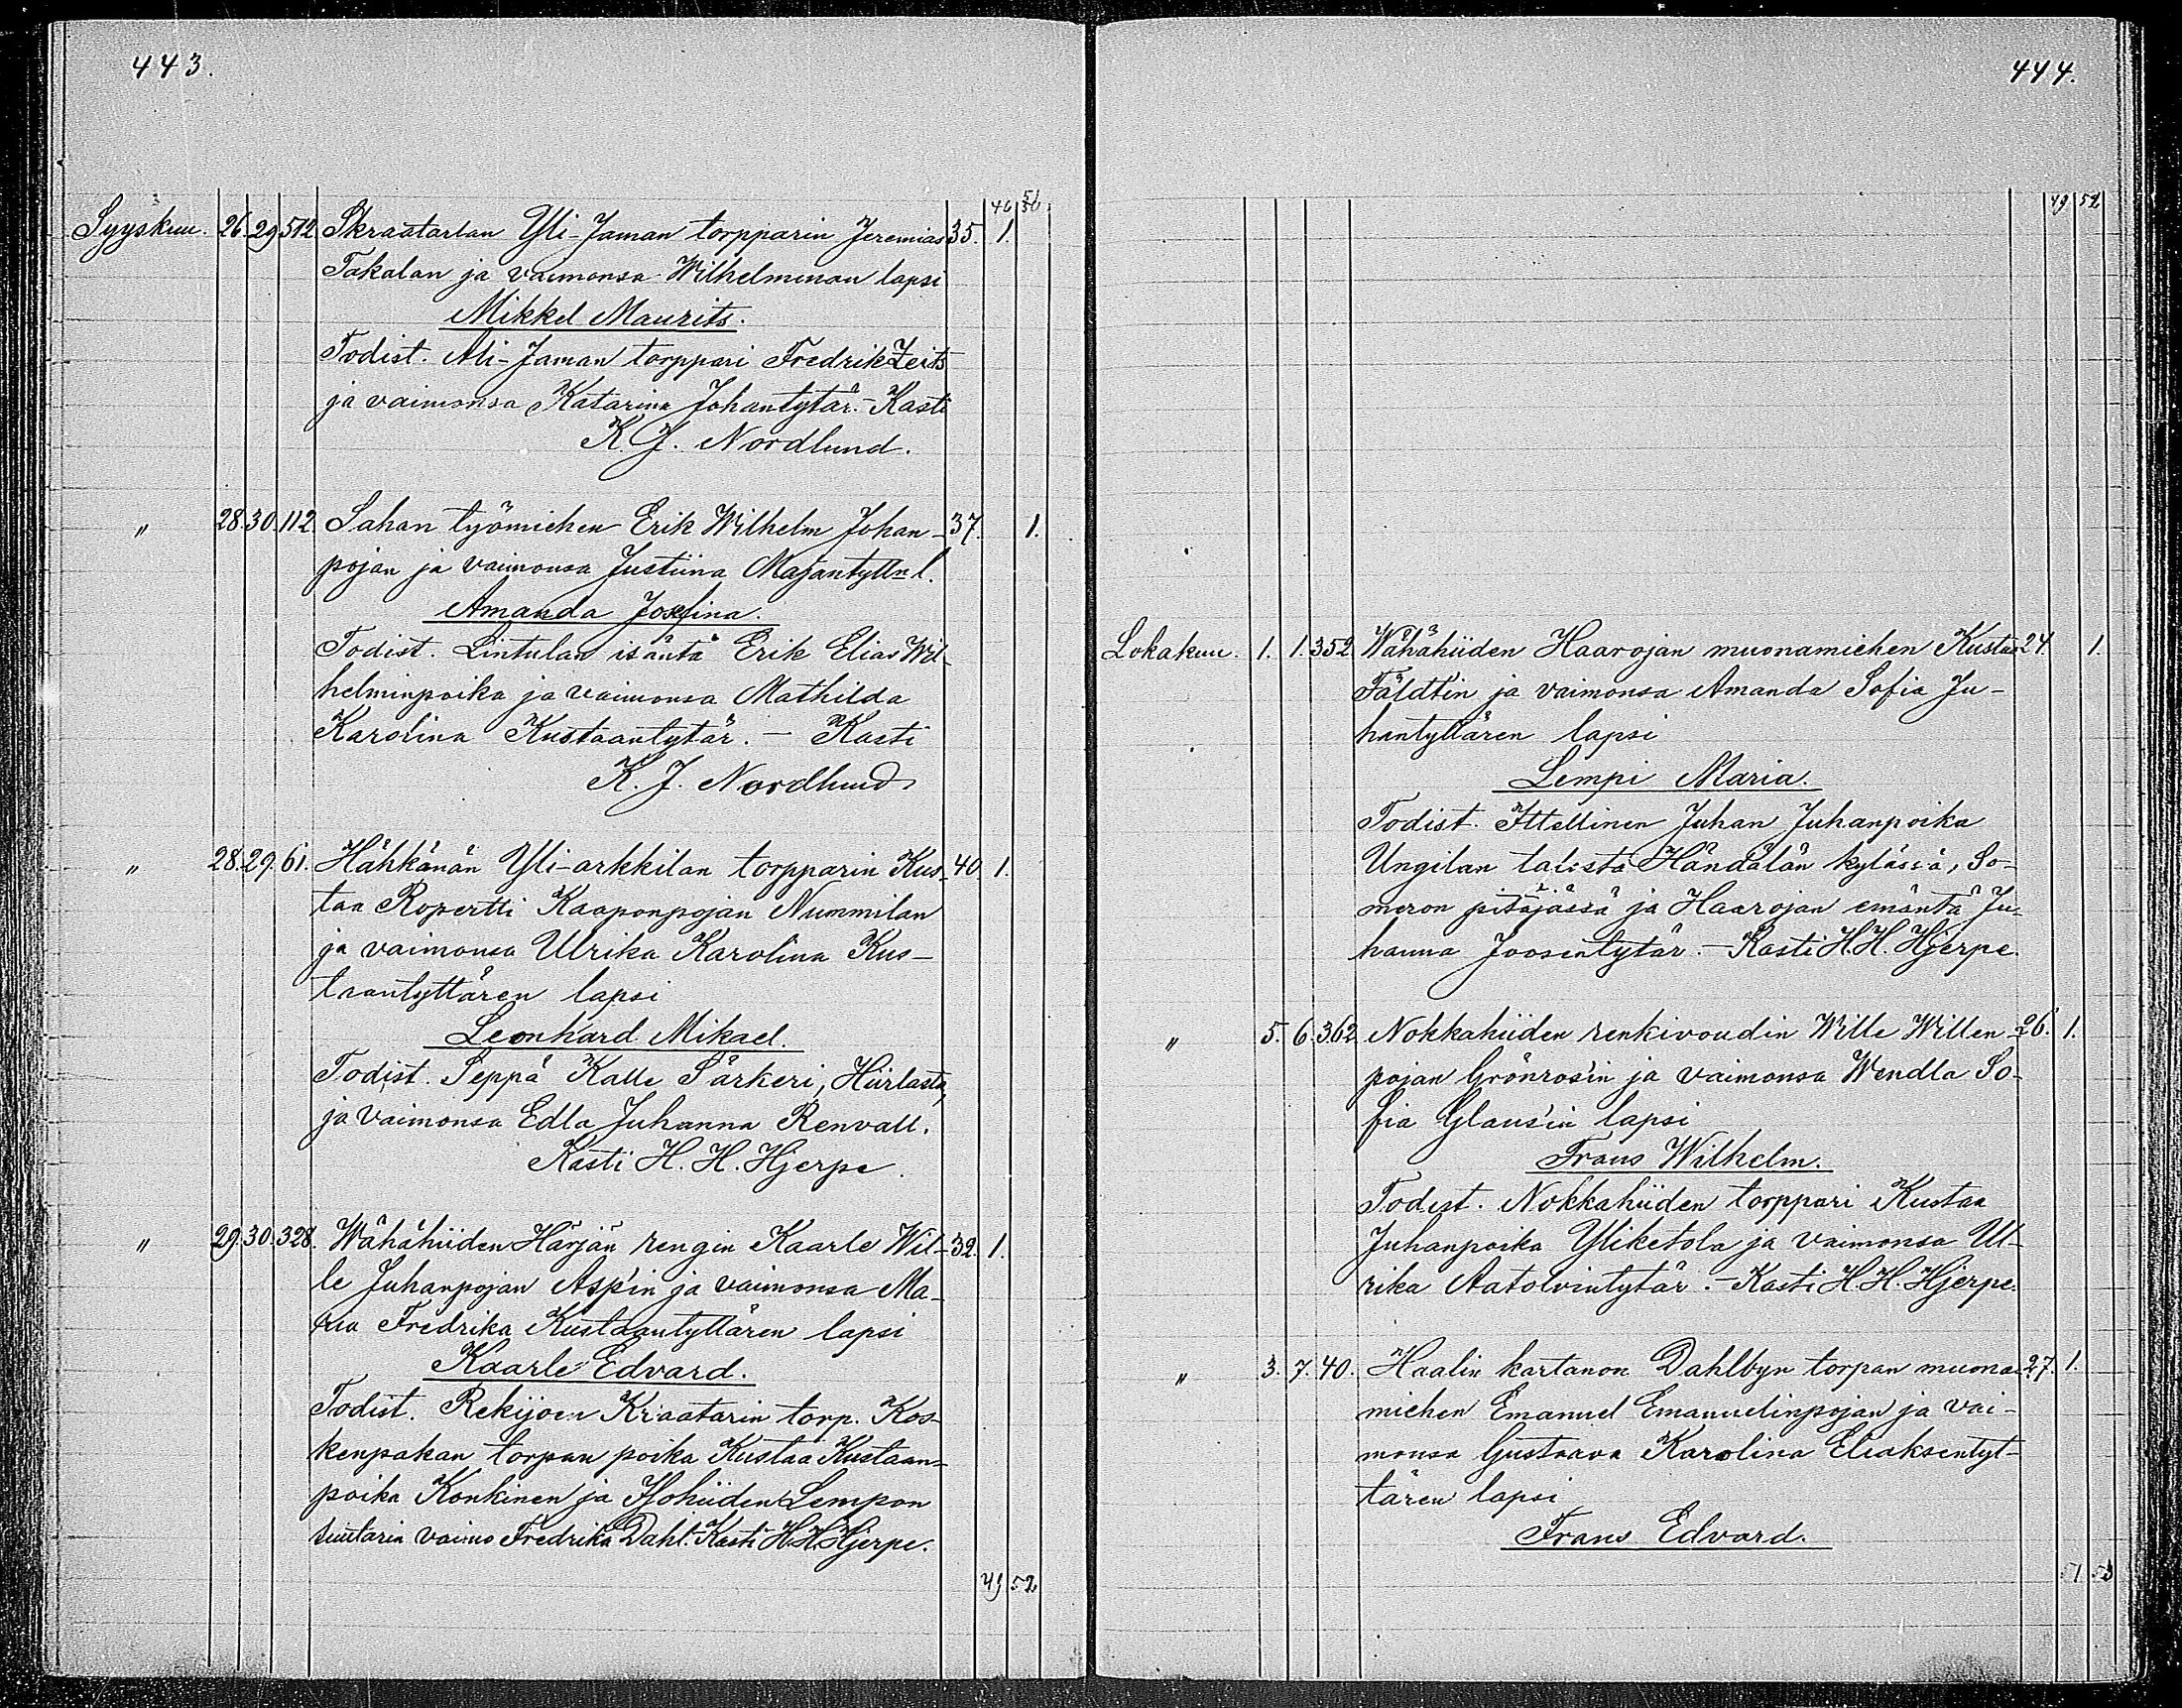 443.
46 51
50
Syyskuu. 26. 29. 512. Skraatarlan Yli-Jaman torpparin Jeremias 35. 1.
Takalan ja vaimonsa Wilhelminan lapsi
Mikkel Maurits.
Todist. Ali-Jaman torppari Fredrik Zeits
ja vaimonsa Katarina Johantytär. - Kasti
K. J. Nordlund.
" 28. 30. 112. Sahan työmiehen Erik Wilhelm Johan- 37. 1.
pojan ja vaimonsa Justiina Majantyttn l.
Amanda Josefina.
Todist. Lintulan isäntä Erik Elias Wil-
helminpoika ja vaimonsa Mathilda
Karolina Kustaantytär. - Kasti
K. J. Nordlund
" 28. 29. 61. Hähkänän Yli-arkkilan torpparin Kus- 40. 1.
taa Ropertti Kaaponpojan Nummilan
ja vaimonsa Ulrika Karolina Kus-
taantyttären lapsi
Leonhard Mikael.
Todist. Seppä Kalle Särkeri, Hiirlasta,
ja vaimonsa Edla Juhanna Renvall.
Kasti H. H. Hjerpe.
" 29. 30. 328. Wähähiiden Härjän rengin Kaarle Wil- 32. 1.
le Juhanpojan Asp'in ja vaimonsa Ma-
ria Fredrika Kustaantyttären lapsi
Kaarle Edvard.
Todist. Rekijoen Kraatarin torp. Kos-
kenpakan torpan poika Kustaa Kustaan-
poika Konkinen ja Isohiiden Lempon
suutarin vaimo Fredrika Dahl. Kasti H. H. Hjerpe.
49 52
444.
49 52
Lokakuu. 1. 1. 352. Wähähiiden Haarojan muonamiehen Kustaa 24. 1.
Fäldtin ja vaimonsa Amanda Sofia Ju-
hantyttären lapsi
Lempi Maria.
Todist. Itsellinen Juhan Juhanpoika
Ungilan talosta Händälän kylässä, So-
meron pitäjässä ja Haarojan emäntä Ju-
hanna Joosentytär. - Kasti H. H. Hjerpe.
" 5. 6. 362. Nokkahiiden renkivoudin Wille Willen- 26. 1.
pojan Grönros'in ja vaimonsa Wendla So-
fia Glaus'in lapsi
Frans Wilhelm.
Todist. Nokkahiiden torppari Kustaa
Juhanpoika Yliketola ja vaimonsa Ul-
rika Aatolvintytär. - Kasti H. H. Hjerpe.
" 3. 7. 40. Haalin kartanon Dahlbyn torpan muona- 27. 1.
miehen Emanuel Emanuelinpojan ja vai-
monsa Gustaava Karolina Eliaksentyt-
tären lapsi
Frans Edvard.
51 53